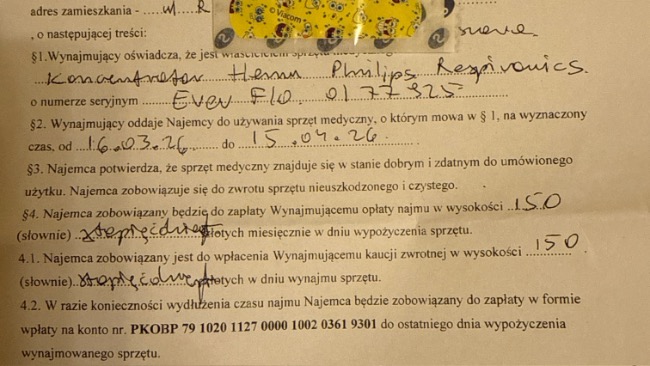 adres zamieszkania - ..... W. R
©Viacom
, o następującej treści:
§1.Wynajmujący oświadcza, że jest właścicielem sprzętu
Koncentrator tlenu Philips Respironics.
o numerze seryjnym ........ Ever Flo. 0177325
§2. Wynajmujący oddaje Najemcy do używania sprzęt medyczny, o którym mowa w § 1, na wyznaczony
czas, od ..16.03.26........ do ..15.04.26.........
§3. Najemca potwierdza, że sprzęt medyczny znajduje się w stanie dobrym i zdatnym do umówionego
użytku. Najemca zobowiązuje się do zwrotu sprzętu nieuszkodzonego i czystego.
§4. Najemca zobowiązany będzie do zapłaty Wynajmującemu opłaty najmu w wysokości ..150
(słownie) ..stopięćdziesiąt złotych miesięcznie w dniu wypożyczenia sprzętu.
4.1. Najemca zobowiązany jest do wpłacenia Wynajmującemu kaucji zwrotnej w wysokości ..150.
(słownie)..stopięćdziesiąt złotych w dniu wynajmu sprzętu.
4.2. W razie konieczności wydłużenia czasu najmu Najemca będzie zobowiązany do zapłaty w formie
wpłaty na konto nr. PKOBP 79 1020 1127 0000 1002 0361 9301 do ostatniego dnia wypożyczenia
wynajmowanego sprzętu.